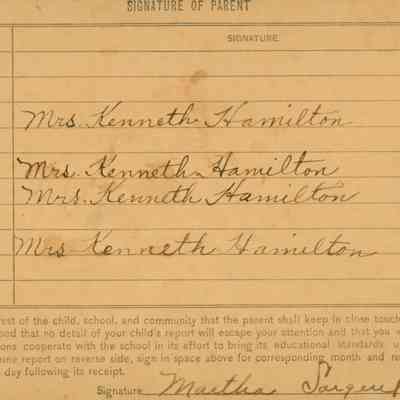 SIGNATURE OF PARENT
SIGNATURE
Mrs. Kenneth Hamilton
Mrs. Kenneth Hamilton
Mrs. Kenneth Hamilton
Mrs Kenneth Hamilton
rest of the child, school, and community that the parent shall keep in close touch
ood that no detail of your child's report will escape your attention and that you w
ions cooperate with the school in its effort to bring its educational standards u
ine report on reverse side, sign in space above for corresponding month and re
day following its receipt.
Signature Martha Sargent